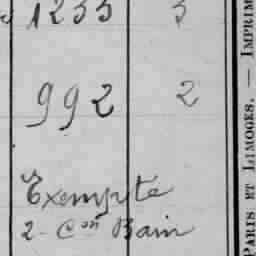 1233 3
992 2
Exempté
2- Con Bain
PARIS ET LIMOGES. — IMPRIM